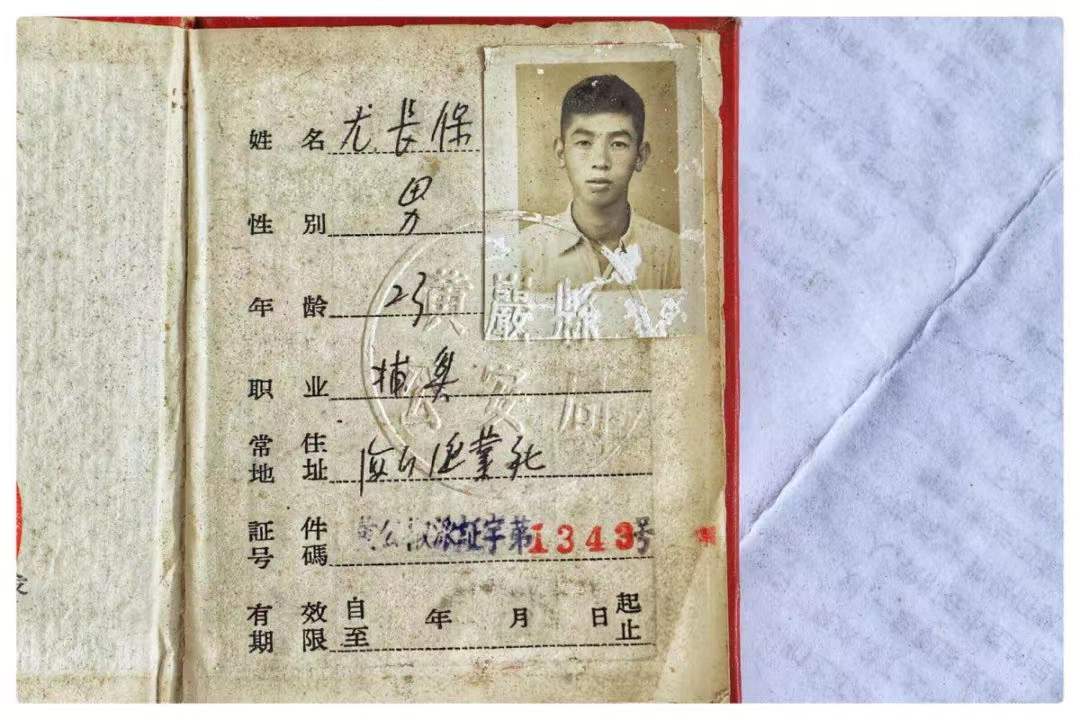 姓名 尤長保
性别 男
年龄 23
黄巖縣
公安局
职业 捕魚
常住地址 渔業社
証件号碼 公 派証字第1343号
有效期限 自至 年 月 日 起止